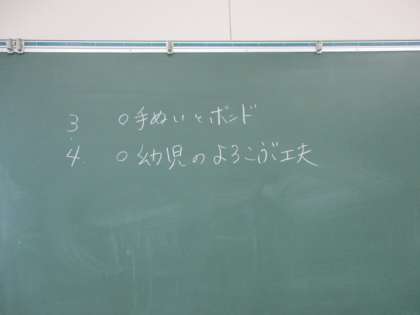 3 ○手ぬいとボンド
4. ○幼児のよろこぶ工夫